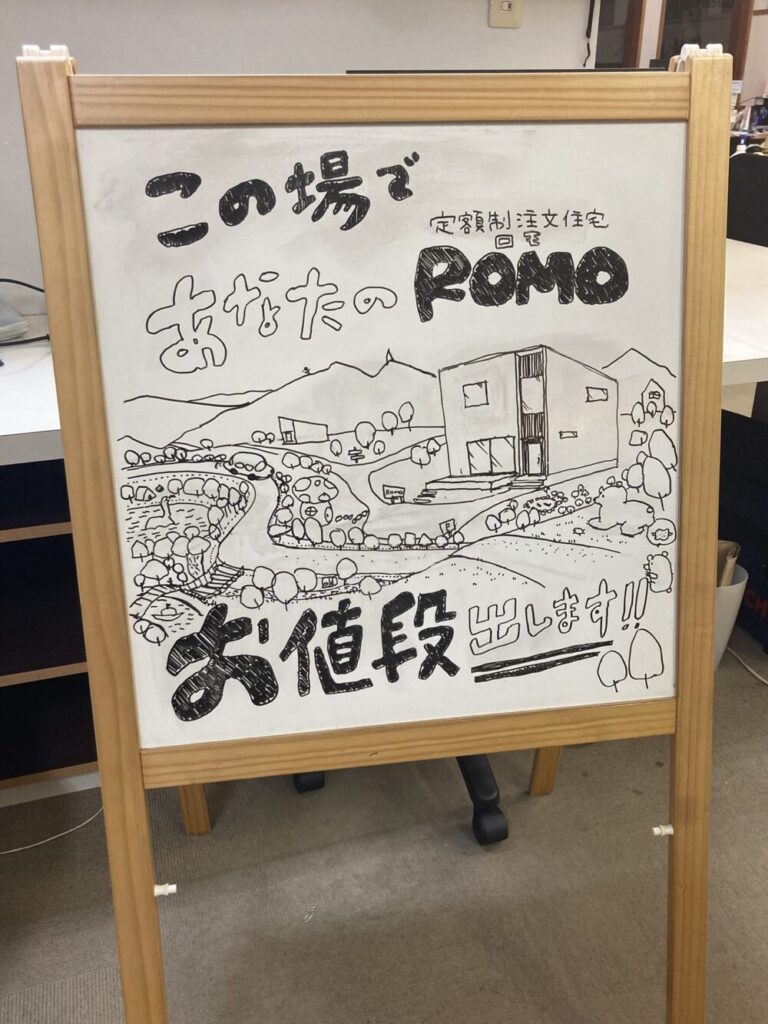 この場で
定額制注文住宅
ROMO
あなたの
ROMO
お値段出します!!